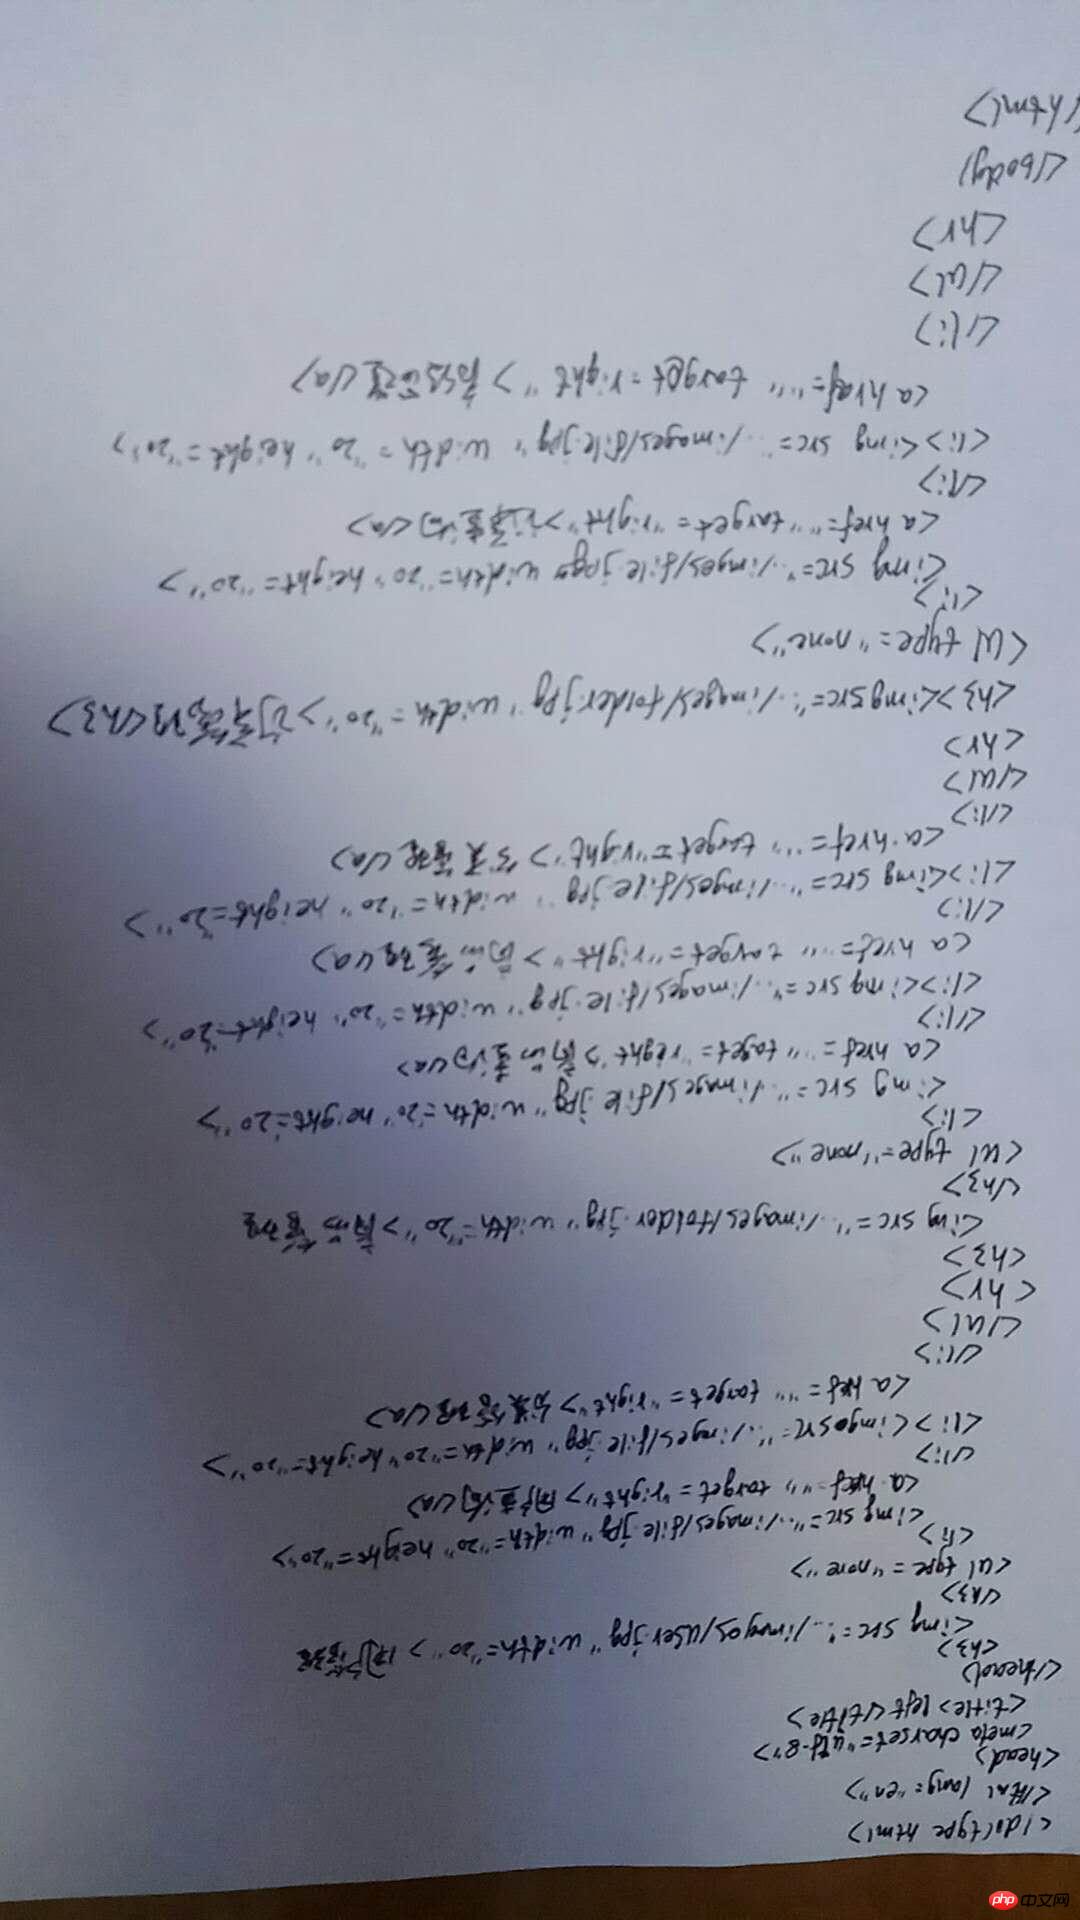 <!doctype html>
<html lang="en">
<head>
<meta charset="utf-8">
<title>left</title>
</head>
<h3>
<img src="../images/user.jpg" width="20"> 用户管理
</h3>
<ul type="none">
<li>
<img src="../images/file.jpg" width="20" height="20">
<a href="" target="right">用户查询</a>
</li>
<li><img src="../images/file.jpg" width="20" height="20">
<a href="" target="right">分类管理</a>
</li>
</ul>
<hr>
<h3>
<img src="../images/folder.jpg" width="20">商品管理
</h3>
<ul type="none">
<li>
<img src="../images/file.jpg" width="20" height="20">
<a href="" taget="right">商品查询</a>
</li>
<li><img src="../images/file.jpg" width="20" height="20">
<a href="" target="right">商品管理</a>
</li>
<li><img src="../images/file.jpg" width="20" height="20">
<a href="" target="right">分类管理</a>
</li>
</ul>
<hr>
<h3><img src="../images/folder.jpg" width="20">订单管理<h3>
<ul type="none">
<li>
<img src="../images/file.jpg" width="20" height="20">
<a href="" target="right">订单查询</a>
</li>
<li><img src="../images/file.jpg" width="20" height="20">
<a href="" target=right"></a>
</li>
</ul>
<hr>
</body>
</html>
php 中文网